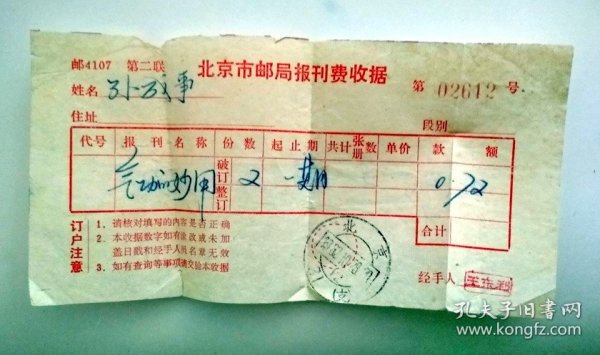 邮4107 第二联 北京市邮局报刊费收据 第 02612 号
姓名
住址 段别
代号 报刊名称 份数 起止期 共计张册数 单价 款额
破订
整订
气功的妙用 2 一期 0.72
合计
订户注意
1. 请核对填写的内容是否正确
2. 本收据数字如有涂改或未加
盖日戳和经手人员名章无效
3. 如有查询等事项请交验本收据
经手人
北京
孔夫子旧书网
www.kongfz.com